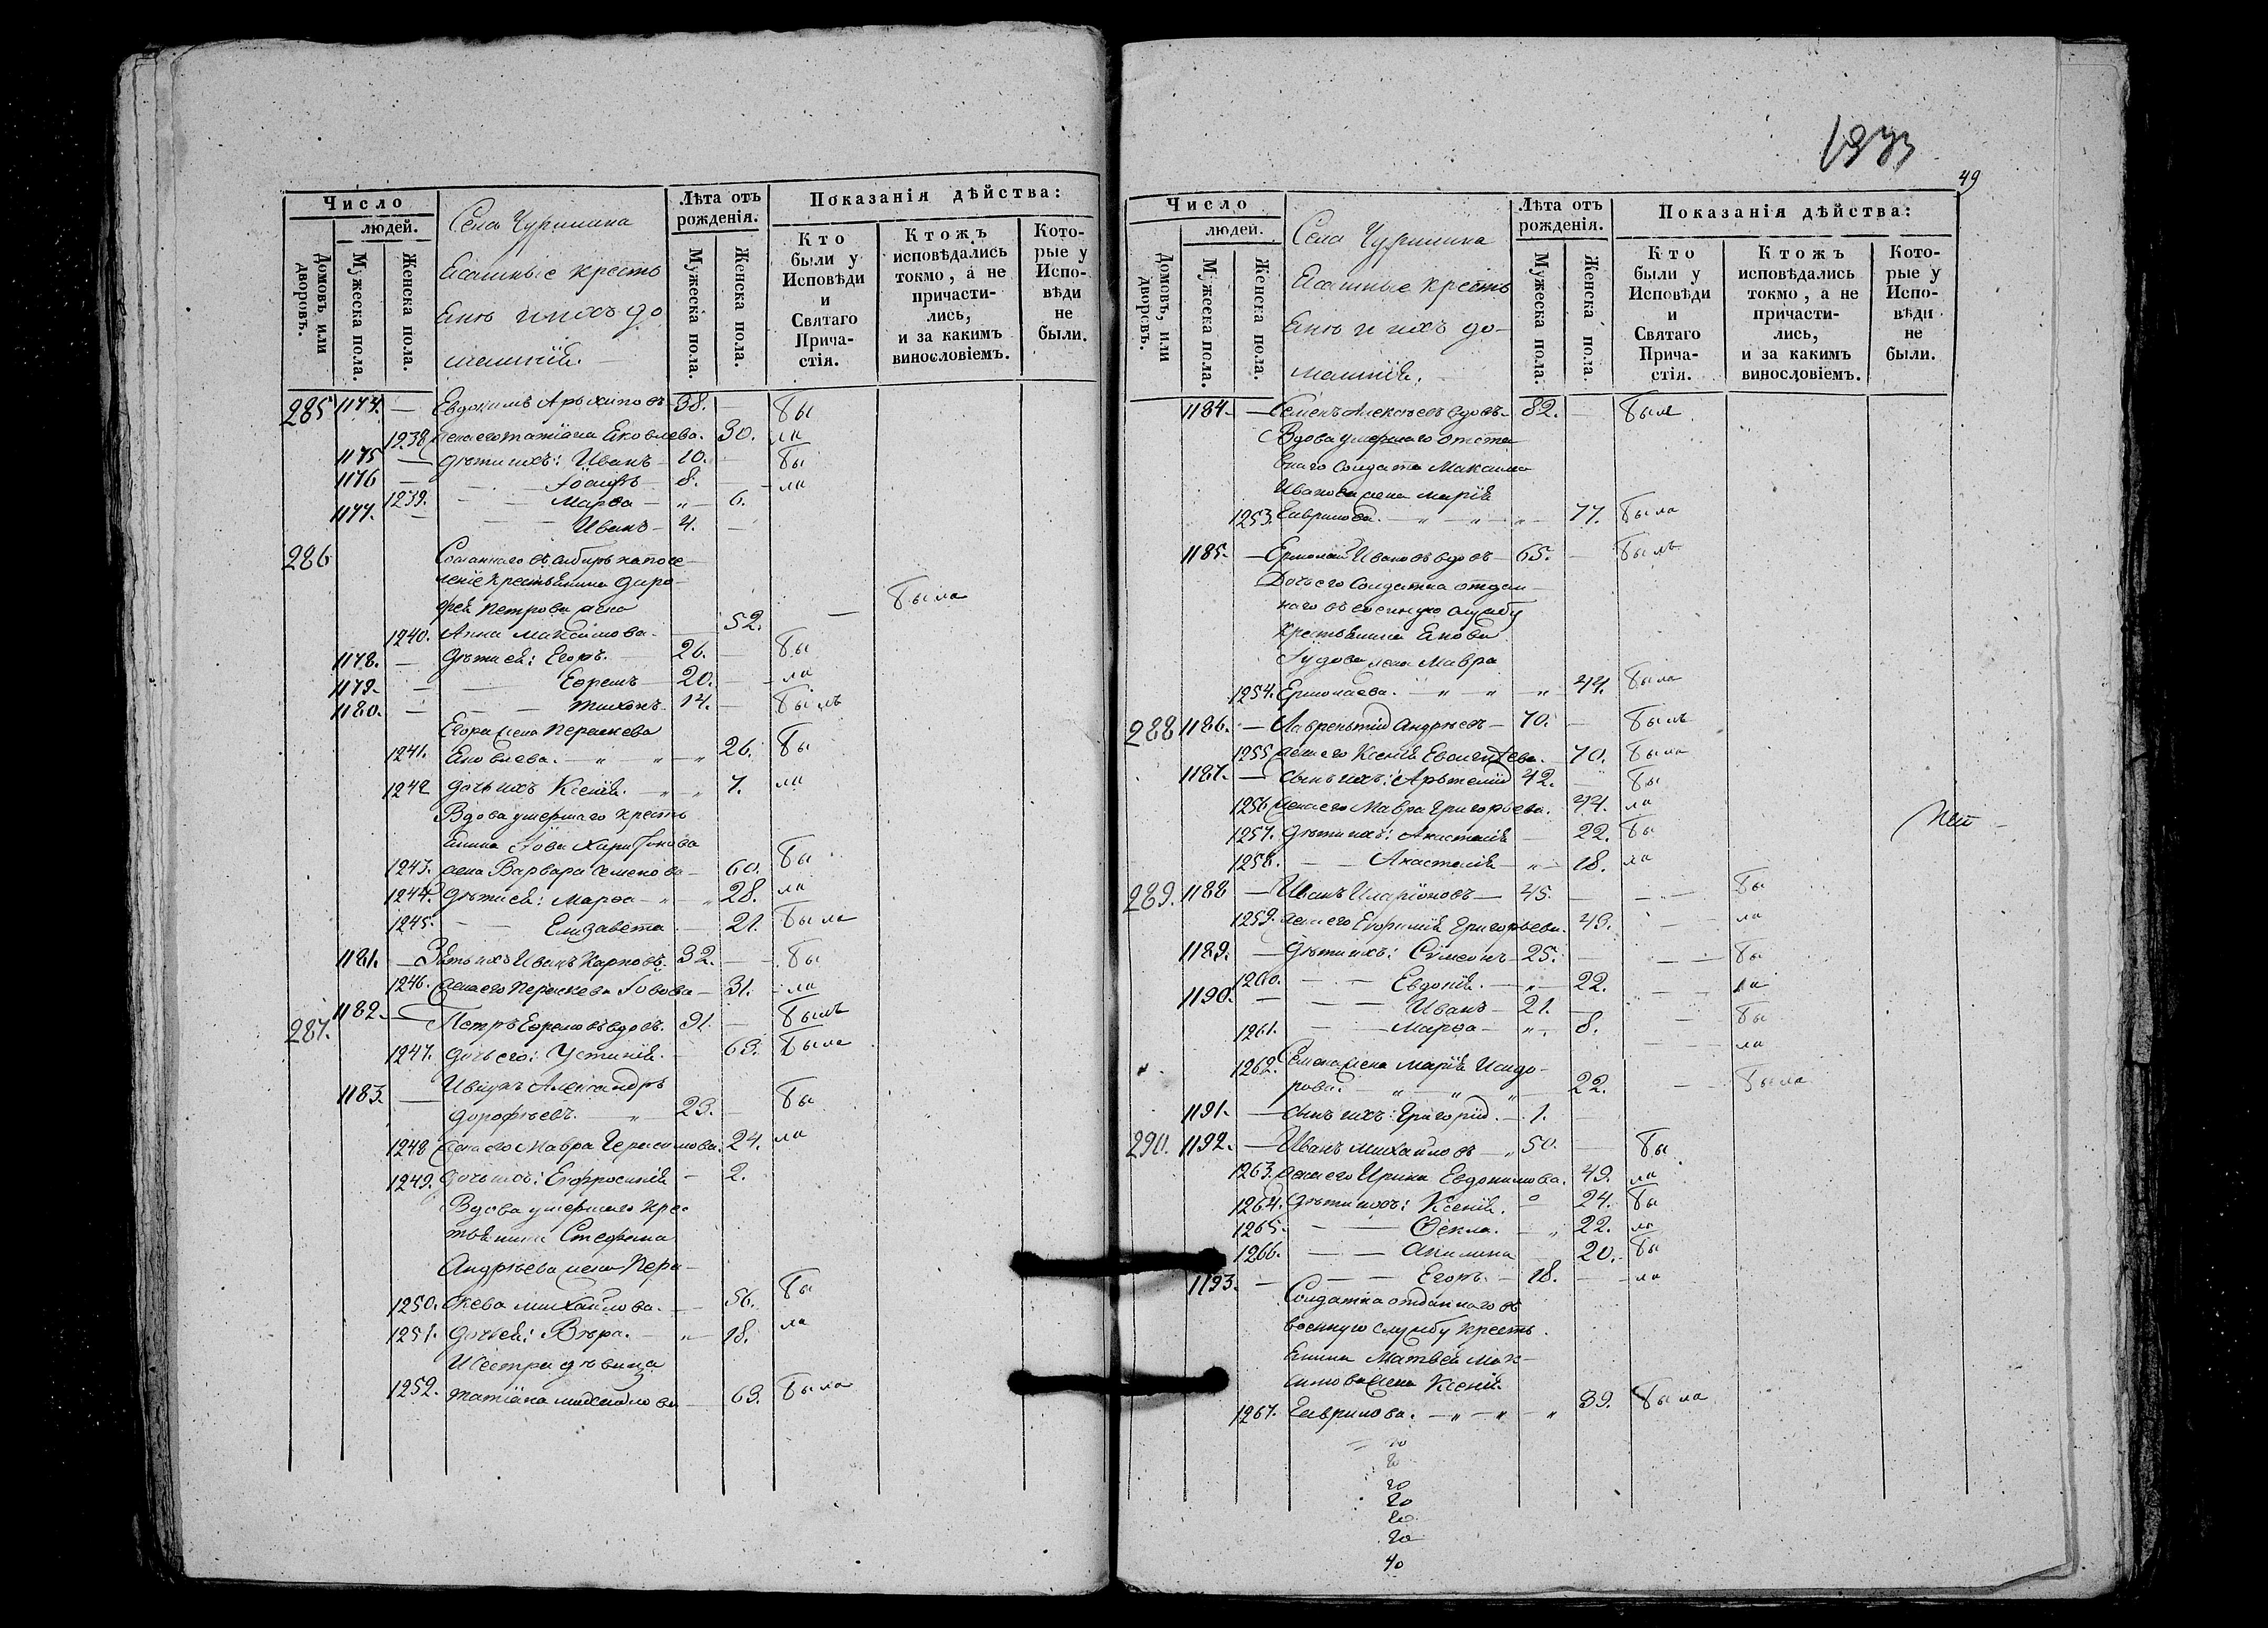 Число
людей.
Домовъ или дворовъ.
Мужеска пола.
Женска пола.
Села Чуринина
Ясашные кресть
яне и ихъ до
машніѣ.
Лѣта отъ рожденія.
Мужеска пола.
Женска пола.
Показанія дѣйства:
Кто были у Исповѣди и Святаго Прича-стія.
Ктожъ исповѣдались токмо, а не причасти-лись, и за какимъ винословіемъ.
Кото-рые у Испо-вѣди не были.
285 1174. — Евдокимъ Архиповъ 38. — бы
1238 жена его Татіана Яковлева. 30. ла
1175 — дѣти ихъ: Иванъ 10. — бы
1176 — Іосифъ 8. — ла
1239. — Марѳа — „ — 6.
1177. — Иванъ — 4. —
286 Сосланнаго въ сибирь на посе-
леніе крестьянина Доро-
фея Петрова жена
1240. Анна Максимова. — 52. — была
1178. — дѣти ея: Егоръ. — 26. — бы
1179. — Ефремъ 20. — ла
1180. — Тихонъ 14. — былъ
Егора жена Пераскева
1241. Яковлева. — „ — „ 26. бы
1242 дочь ихъ Ксенія. — „ 7. ла
Вдова умершаго кресть
янина Іова Харитонова
1243. жена Варвара Семенова — 60. бы
1244. дѣти ея: Марѳа — „ 28. ла
1245. — Елизавета — 21. была
1181. — Зять ихъ Иванъ Карповъ. 32. — бы
1246. жена его Пераскева Іовова — 31. — ла
287. 1182. — Петръ Ефремовъ вдовъ. 91. — былъ
1247. дочь его: Устинія. — 63. была
1183. — Ивнукъ Александръ
Дорофѣевъ. — „ 23. — бы
1248 жена его Мавра Герасимова. 24. ла
1249. дочь ихъ: Евфросинія — 2.
Вдова умершаго кре-
стьянина Стефана
Андрѣева жена Пера-
1250. скева Михайлова. — 56. бы
1251. дочь ея: Вѣра. — „ — 18. ла
И сестра дѣвица
1252. Татіана Михайлова — 63. была
49
Число
людей.
Домовъ, или дворовъ.
Мужеска пола.
Женска пола.
Села Чуринина
Ясашные кресть
яне и ихъ до-
машніѣ.
Лѣта отъ рожденія.
Мужеска пола.
Женска пола.
Показанія дѣйства:
Кто были у Исповѣди и Святаго Прича-стія.
Ктожъ исповѣдались токмо, а не причасти-лись, и за какимъ винословіемъ.
Кото-рые у Испо-вѣди не были.
1184. — Семенъ Алексѣевъ вдовъ. 82. — былъ
Вдова умершаго отста
внаго солдата Максима
Иванова жена Марія
1253. Гаврилова. — „ — „ — „ — 77. была
1185. — Ермолай Ивановъ вдовъ — 65. — былъ
Дочь его солдатка отдан-
наго въ военную службу
крестьянина Якова
Гудова жена Мавра
1254. Ермолаева. — „ — „ — „ 44. была
288 1186. — Лаврентій Андрѣевъ — 70. — былъ
1255 жена его Ксенія Евсигнѣева. — 70. была
1187. — сынъ ихъ: Артемій 42. — бы
1256 жена его Мавра Григорьева. 44. ла
1257. дѣти ихъ: Анастасія — 22. бы
1258. — Анастасія — „ — 18. ла
289. 1188 — Иванъ Иларіоновъ — 45. — бы
1259. жена его Евфимія Григорьева. 49. — ла
1189. — дѣти ихъ: Сѵмеонъ — 25. — бы
1260. — Евдокія. — „ — 22. — ла
1190. — Иванъ — 21. — бы
1261. — Марѳа — „ — 8. — ла
1262. Семена жена Марія Исидо-
рова. — „ — „ — „ — 22. — была
1191. — сынъ ихъ: Григорій. — 1. —
290. 1192. — Иванъ Михайловъ — „ 50. — бы
1263. жена его Ирина Евдокимова. 49. ла
1264. дѣти ихъ: Ксенія. — 24. бы
1265. — Ѳекла. — „ 22. ла
1266. — Акилина — 20. бы
1193. — Егоръ. — 18. — ла
Солдатка отданнаго въ
военную службу кресть
янина Матвея Мак-
симова жена Ксенія
1267. Гаврилова. — „ — „ — „ 39. была
20
20
20
20
20
20
40